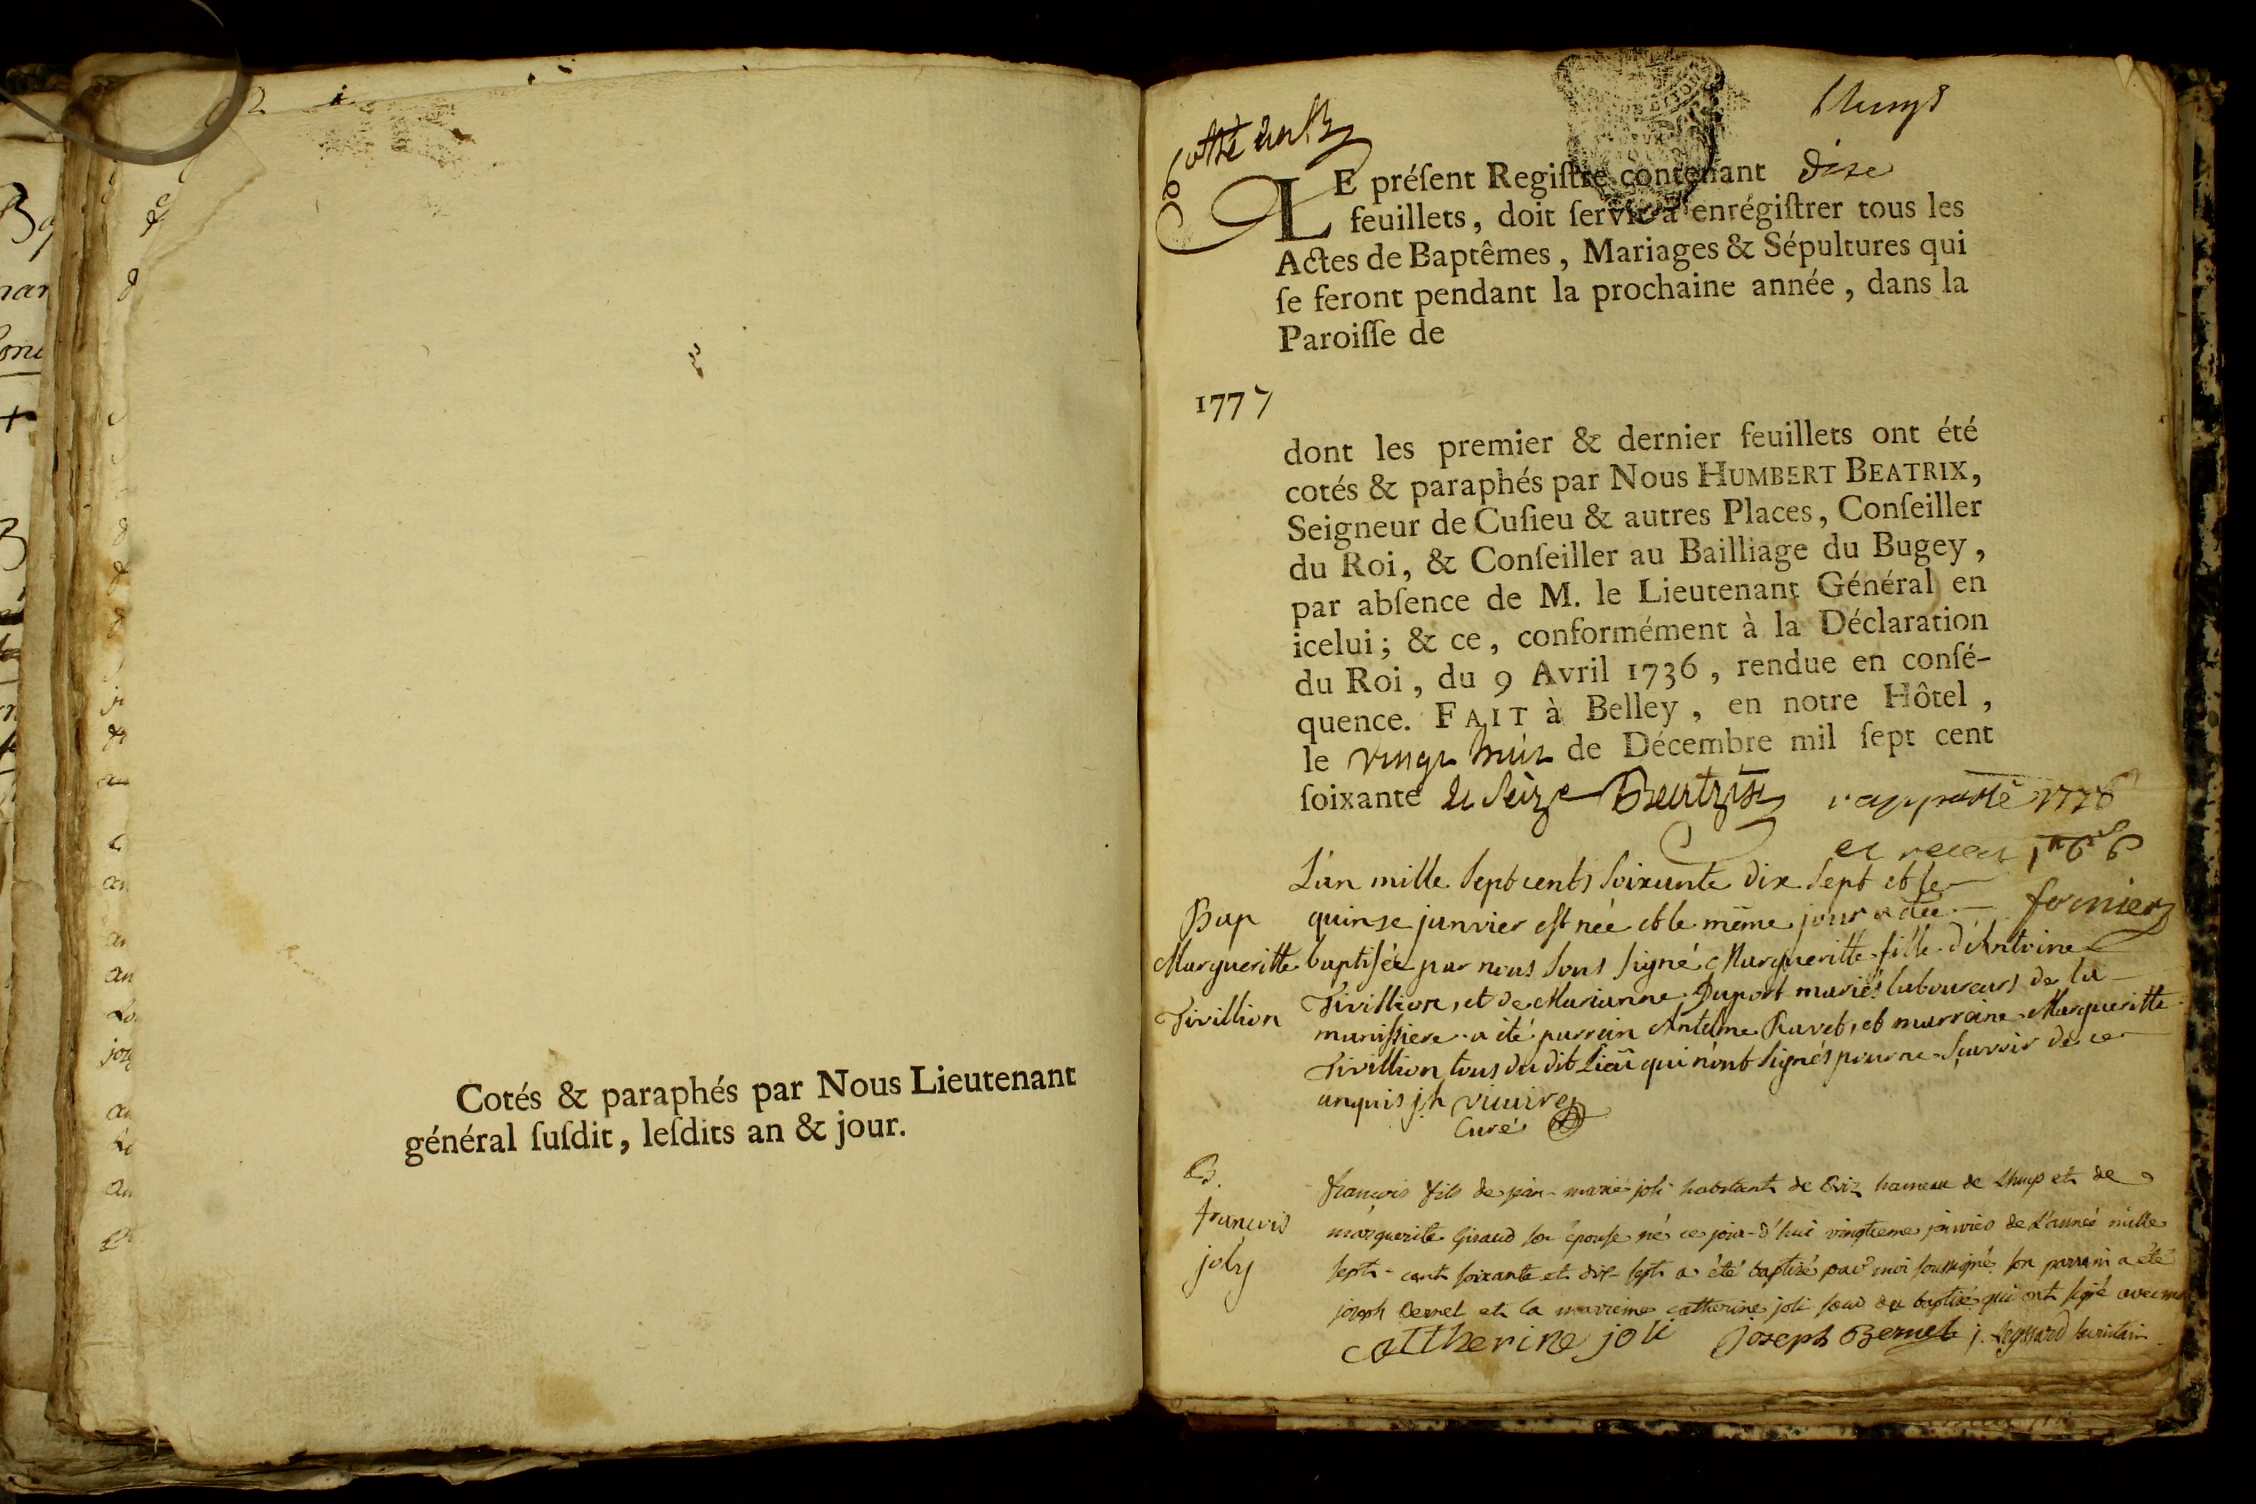 Cotés & paraphés par Nous Lieutenant
général ſuſdit, leſdits an & jour.
Lhuys
LE préſent Regiſtre contenant dixe
feuillets, doit ſervir à enrégiſtrer tous les
Actes de Baptêmes, Mariages & Sépultures qui
ſe feront pendant la prochaine année, dans la
Paroiſſe de
1777
dont les premier & dernier feuillets ont été
cotés & paraphés par Nous HUMBERT BEATRIX,
Seigneur de Cuſieu & autres Places, Conſeiller
du Roi, & Conſeiller au Bailliage du Bugey,
par abſence de M. le Lieutenant Général en
icelui; & ce, conformément à la Déclaration
du Roi, du 9 Avril 1736, rendue en conſé-
quence. FAIT à Belley, en notre Hôtel,
le vingt huit de Décembre mil ſept cent
ſoixante et seize Beatrix rapporté 1778
et recu
L'an mille sept cents soixante dix sept et le
fornier
Bap
quinze janvier est née et le même jour a été
Margueritte
baptisée par nous sous signé Margueritte fille d'Antoine
Tivillion
Tivillion, et de Marianne Duport mariés laboureurs de la
manissiere a été parrain Antelme Ravet, et marraine Margueritte
Tivillion tous du dit Lieu qui n'ont signés pour ne sçavoir de ce
enquis
Curé
B.
françois
joly
françois fils de jean-marie joli habitant de hameau de Lhuys et de
marguerite Giraud son épouse né ce jour-d'hui vingtieme janvier de L'année mille
sept-cent soixante et dix-sept a été baptisé par moi soussigné son parrain a été
joseph Bernet et la marreine catherine joli soeur du baptisé qui ont signé avec moi
catherine joli joseph Bernet